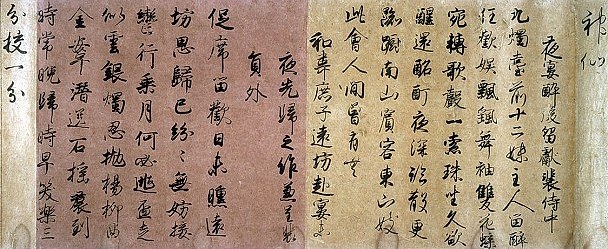 神仙
夜宴醉後留獻裴侍中
九燭臺前十二姝主人留醉
任歡娛飄颻舞袖雙飛蝶
宛轉歌聲一索珠坐久欲
醒還酩酊夜深臨散更
踟躕南山賓客東山妓
此會人間曾有無
和韋庶子遠坊赴宴未
夜先歸之作兼呈裴
員外
促席留歡日未曛遠
坊思歸已紛〻無妨按
轡行乘月何必逃盃走
似雲銀燭忍拋楊柳曲
金鞍潛送石榴裙到
時常晚歸時早笑樂三
分校一分